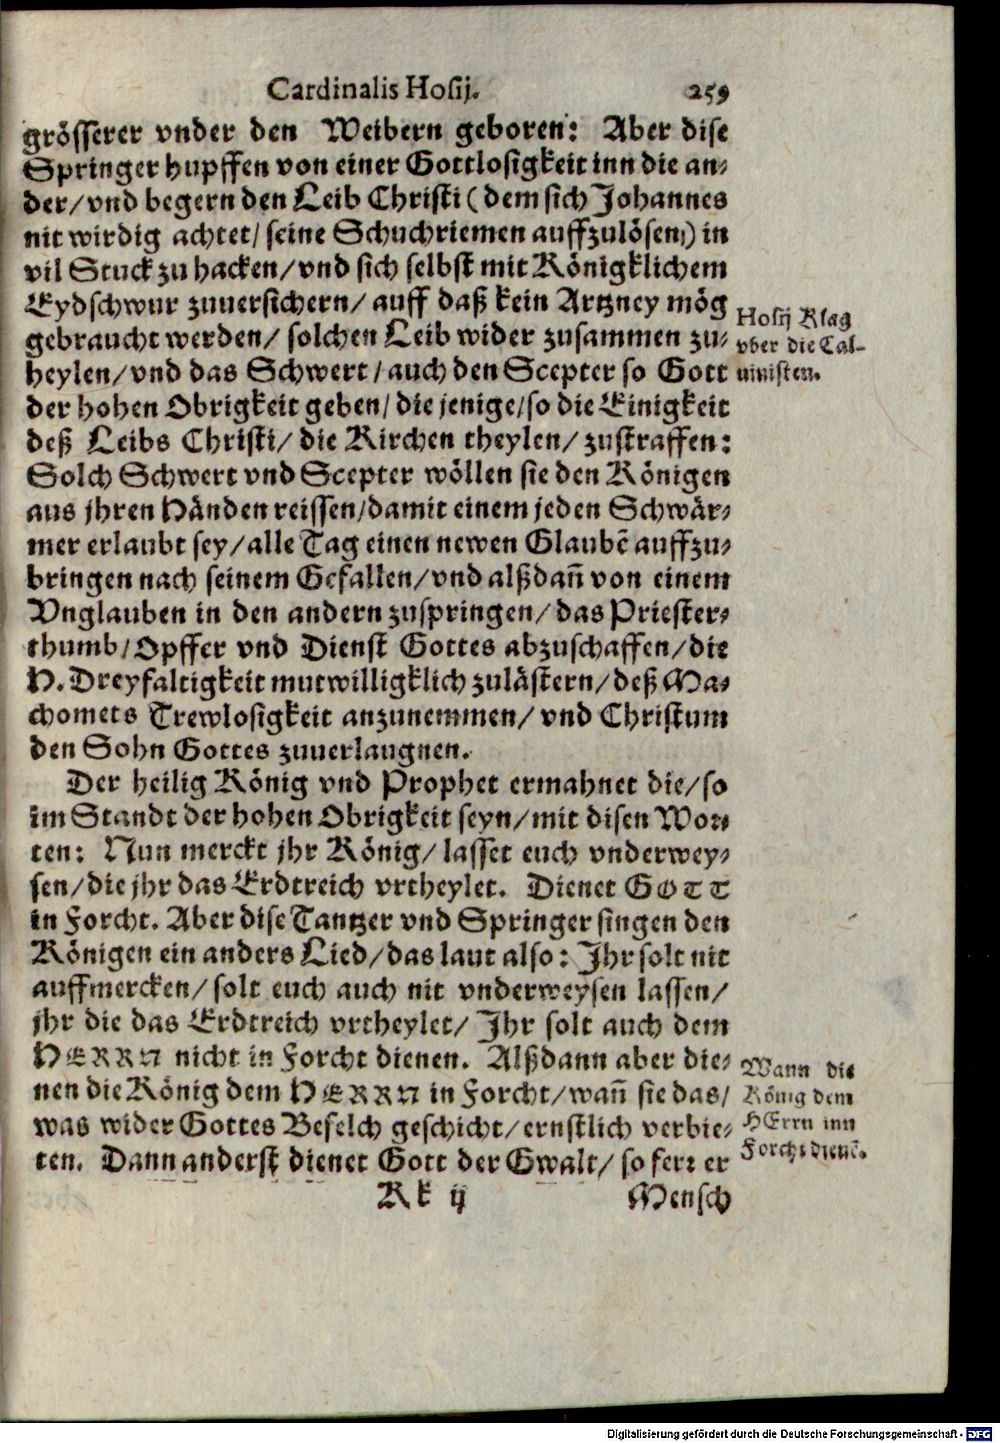 Cardinalis Hosij. 259
grösserer vnder den Weibern geboren: Aber dise
Springer hupffen von einer Gottlosigkeit inn die an-
der/vnd begern den Leib Christi (dem sich Johannes
nit wirdig achtet/ seine Schuchriemen auffzulösen/) in
vil Stuck zu hacken/vnd sich selbst mit Königklichem
Eydschwur zuuersichern/ auff daß kein Artzney mög
gebraucht werden/ solchen Leib wider zusammen zu-
heylen/vnd das Schwert/auch den Scepter so Gott
der hohen Obrigkeit geben/ die jenige/so die Einigkeit
deß Leibs Christi/ die Kirchen theylen/ zustraffen:
Solch Schwert vnd Scepter wöllen sie den Königen
aus jhren Händen reissen/damit einem jeden Schwär-
mer erlaubt sey/alle Tag einen newen Glaubē auffzu-
bringen nach seinem Gefallen/vnd alßdañ von einem
Vnglauben in den andern zuspringen/das Priester-
thumb/Opffer vnd Dienst Gottes abzuschaffen/die
H. Dreyfaltigkeit mutwilligklich zulästern/deß Ma-
chomets Trewlosigkeit anzunemmen/ vnd Christum
den Sohn Gottes zuuerlaugnen.
Der heilig König vnd Prophet ermahnet die/so
im Standt der hohen Obrigkeit seyn/mit disen Wor-
ten: Nun merckt jhr König/lasset euch vnderwey-
sen/die jhr das Erdtreich vrtheylet. Dienet GOTT
in Forcht. Aber dise Tantzer vnd Springer singen den
Königen ein anders Lied/das laut also: Jhr solt nit
auffmercken/ solt euch auch nit vnderweysen lassen/
jhr die das Erdtreich vrtheylet/ Jhr solt auch dem
HERRN nicht in Forcht dienen. Alßdann aber die-
nen die König dem HERRN in Forcht/wañ sie das/
was wider Gottes Befelch geschicht/ernstlich verbie-
ten. Dann anderst dienet Gott der Gwalt/ so ferr er
Kk ij Mensch
Hosij Klag
vber die Cal-
uinisten.
Wann die
König dem
HErrn inn
Forcht dienē.
Digitalisierung gefördert durch die Deutsche Forschungsgemeinschaft - DFG